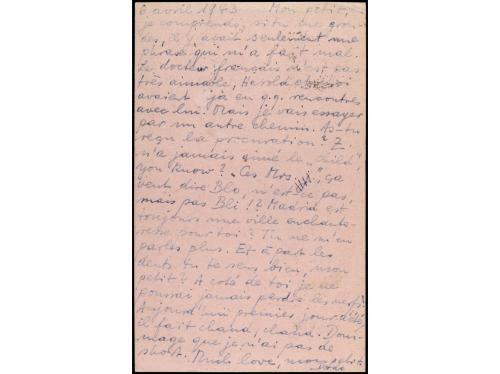 6 avril 1983. Mon petit,
je comprends, si tu me gron-
des, il y avait seulement une
phrase qui m'a fait mal.
Le docteur français n'est pas
très aimable, Harold et moi
avaient jà en q.q. rencontres
avec lui. Mais je vais essayer
par un autre chemin. As-tu
reçu la procuration? Z
n'a jamais aimé le "child"
you know? "Ces Mrs. ", ça
veut dire Blo, n'est ce pas,
mais pas Bli!? Madrid est
toujours une ville enchante-
resse pour toi? Tu ne m'en
parles plus. Et à part les
dents tu te sens bien, mon
petit? A coté de toi je ne
pourrai jamais perdre les nerfs.
Aujourd'hui premier jour d'été,
il fait chaud, chaud. Dom-
mage que je n'ai pas de
short. Much love, mon petit